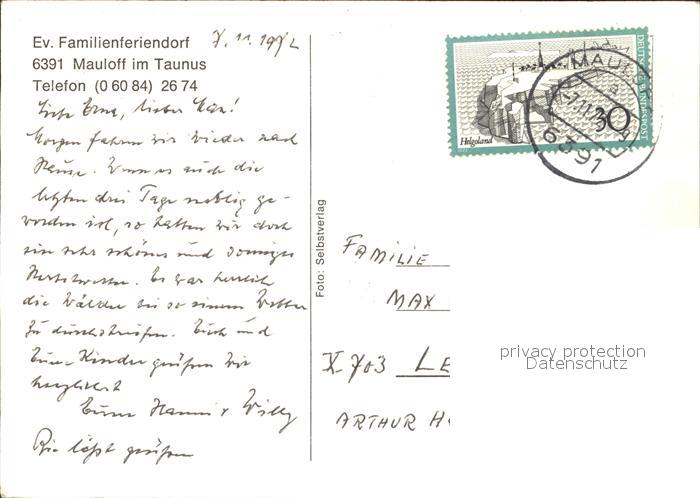 Ev. Familienferiendorf 7.11.1972
6391 Mauloff im Taunus
Telefon (0 60 84) 26 74
Liebe Erna, lieber Max!
Morgen fahren wir wieder nach
Hause. Wenn es auch die
letzten drei Tage neblig ge-
worden ist, so hatten wir doch
ein sehr schönes und sonniges
Herbstwetter. Es war herrlich
die Wälder bei so einem Wetter
zu durchstreifen. Euch und
Eure Kinder grüßen wir
herzlichst
Eure Hanni + Willy
Ria läßt grüßen
Foto: Selbstverlag
DEUTSCHE BUNDESPOST
Helgoland
30
MAUL
a
-7.11.72
6391
FAMILIE
MAX
X 703 LE
ARTHUR H
privacy protection
Datenschutz